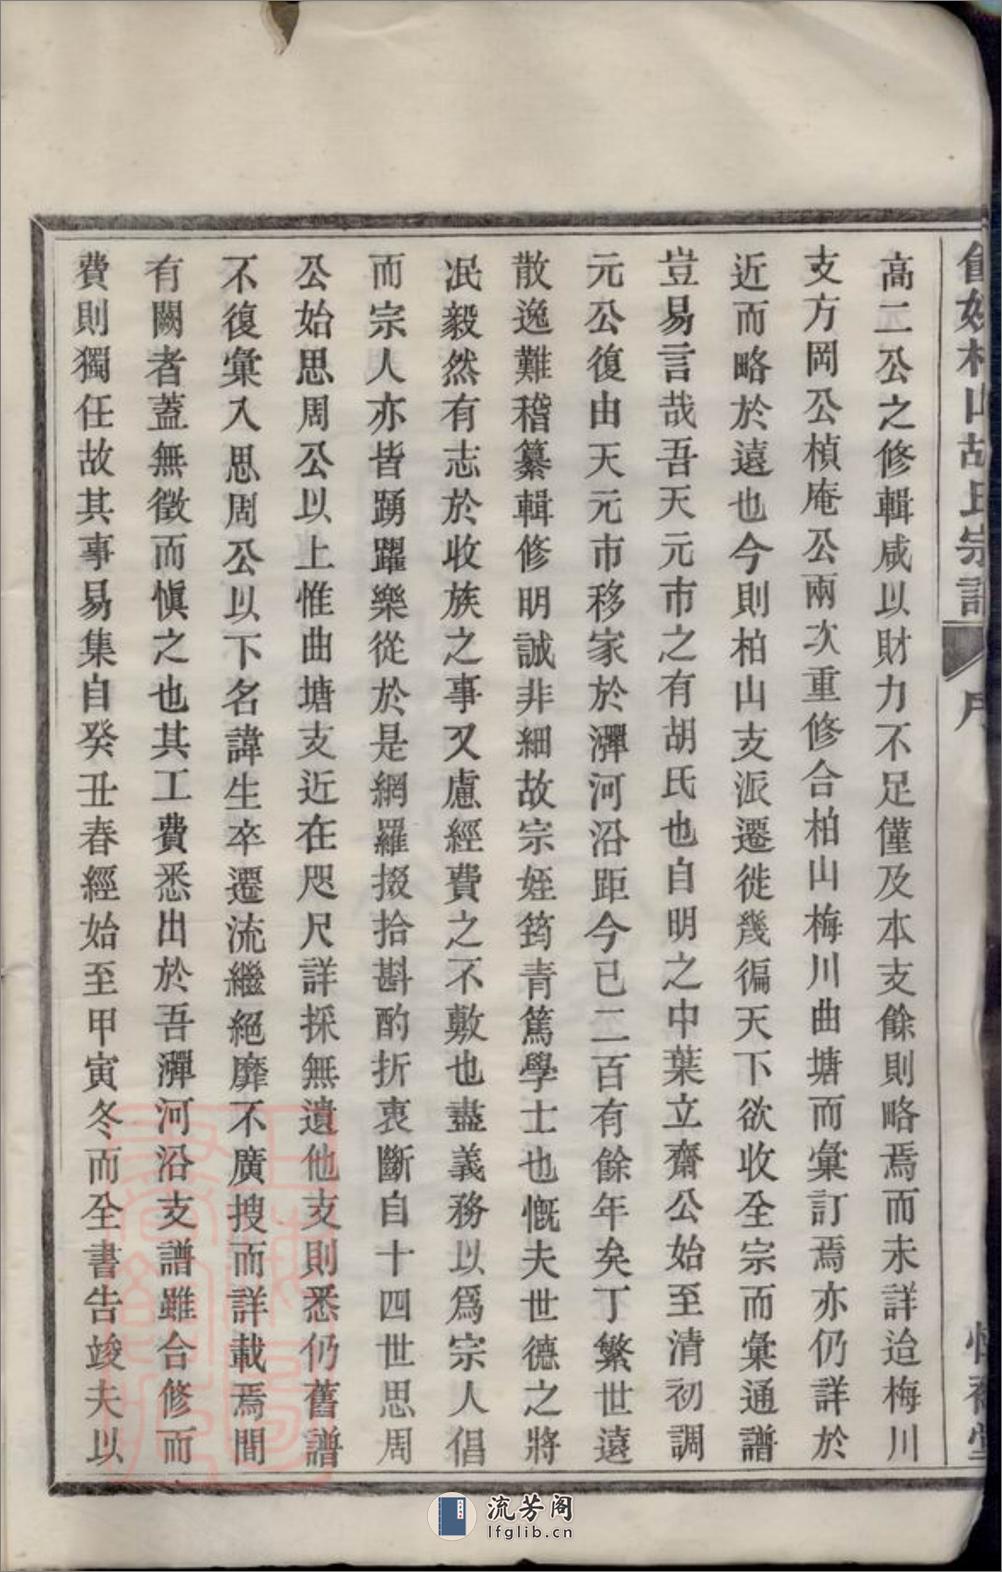 柏山胡氏宗譜
序
高二公之修輯咸以財力不足僅及本支餘則略焉而未詳迨梅川
支方岡公楨庵公兩次重修合柏山梅川曲塘而彙訂焉亦仍詳於
近而略於遠也今則柏山支派遷徙幾徧天下欲收全宗而彙通譜
豈易言哉吾天元市之有胡氏也自明之中葉立齋公始至清初調
元公復由天元市移家於滭河沿距今已二百有餘年矣丁繁世遠
散逸難稽纂輯修明誠非細故宗姪筠青篤學士也慨夫世德之將
泯毅然有志於收族之事又慮經費之不敷也盡義務以爲宗人倡
而宗人亦皆踴躍樂從於是網羅掇拾斟酌折衷斷自十四世思周
公始思周公以上惟曲塘支近在咫尺詳採無遺他支則悉仍舊譜
不復彙入思周公以下名諱生卒遷流繼絕靡不廣搜而詳載焉間
有闕者蓋無徵而愼之也其工費悉出於吾滭河沿支譜雖合修而
費則獨任故其事易集自癸丑春經始至甲寅冬而全書告竣夫以
流芳阁
lfglib.cn